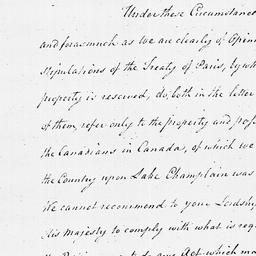 Under these Circumstances
and forasmuch as we are clearly of Opin
Stipulations of the Treaty of Paris, by wh
property is reserved, do, both in the letter
of them, refer only to the property and, pos
the Canadians in Canada, of which we
the Country upon Lake Champlain was
We cannot recommend to your Lordship
His Majesty to comply with what is req
any Act which m